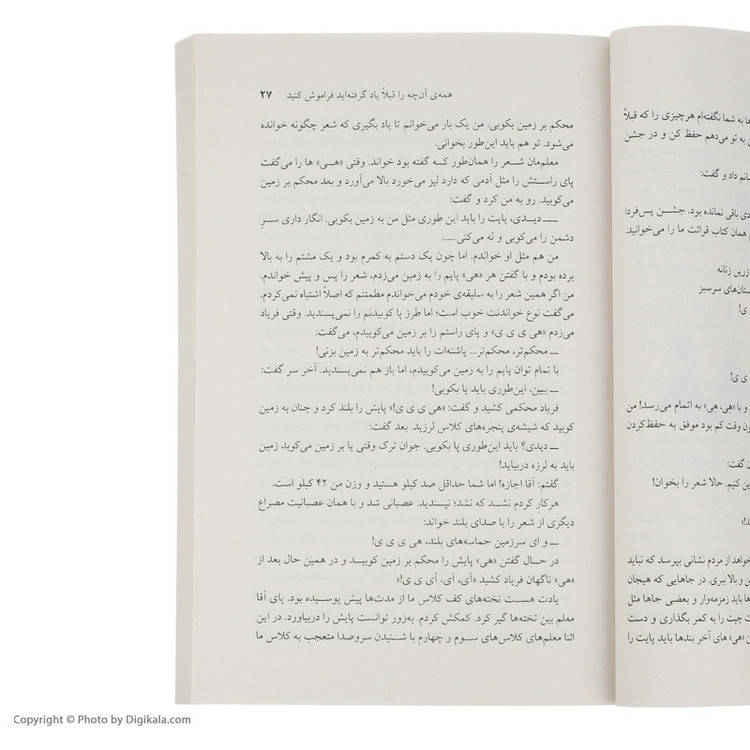 ها به شما نگفته‌ام هرچیزی را که قبلاً
ن به تو می‌دهم حفظ کن و در جشن
انم داد و گفت:
دی باقی نمانده بود. جشـن پس‌فردا
م همان کتاب قرائت ما را می‌خوانید.
زرین زنانه
ستان‌های سرسبز
ی!
ی ی!
و با «هی، هی» به اتمام می‌رسد! من
ون وقت کم بود موفق به حفظ‌کردن
ن گفت:
ین کنیم. حالا شعر را بخوان!
دا!»
خواهد از مردم نشانی بپرسد که نباید
ن و بالا ببری. در جاهایی که هیجان
ها باید زمزمه‌وار و بعضی جاها مثل
ت چپت را به کمر بگذاری و دست
ن «هی» های آخر بندها باید پایت را
همه‌ی آن‌چه را قبلاً یاد گرفته‌اید فراموش کنید ۲۷
محکم بر زمین بکوبی. من یک بار می‌خوانم تا یاد بگیری که شعر چگونه خوانده
می‌شود. تو هم باید این‌طور بخوانی.
معلم‌مان شـعر را همان‌طور کـه گفته بود خواند. وقتی «هـی» ها را می‌گفت
پای راسـتش را مثل آدمی که دارد لیز می‌خورد بالا می‌آورد و بعد محکم بر زمین
می‌کوبید. رو به من کرد و گفت:
ـــ دیـدی، پایت را باید این طوری مثل من به زمین بکوبی. انگار داری سـرِ
دشمن را می‌کوبی و له می‌کنی......
من هم مثل او خواندم. اما چون یک دستم به کمرم بود و یک مشتم را به بالا
برده بودم و با گفتن هر «هی» پایم را به زمین می‌زدم، شعر را پس و پیش خواندم.
من اگر همین شعر را به سلیقه‌ی خودم می‌خواندم مطمئنم که اصلاً اشتباه نمی‌کردم.
می‌گفت نوع خواندنت خوب است؛ اما طرز پا کوبیدنم را نمی‌پسندید. وقتی فریاد
می‌زدم «هی ی ی ی» و پای راستم را بر زمین می‌کوبیدم، می‌گفت:
ـــ محکم‌تر، محکم‌تر... پاشنه‌ات را باید محکم‌تر به زمین بزنی!
با تمام توان پایم را به زمین می‌کوبیدم، اما باز هم نمی‌پسندید. آخر سر گفت:
ـــ ببین، این‌طوری باید پا بکوبی!
فریاد محکمی کشید و گفت: «هی ی ی ی!» پایش را بلند کرد و چنان به زمین
کوبید که شیشه‌ی پنجره‌های کلاس لرزید. بعد گفت:
ـــ دیدی؟ باید این‌طوری پا بکوبی. جوان ترک وقتی پا بر زمین می‌کوبد زمین
باید به لرزه دربیاید!
گفتم: آقا اجازه! اما شما حداقل صد کیلو هستید و وزن من ۴۲ کیلو است.
هرکار کردم نشـد که نشد؛ نپسندید. عصبانی شد و با همان عصبانیت مصراع
دیگری از شعر را با صدای بلند خواند:
ـــ و ای سرزمین حماسه‌های بلند، هی ی ی ی!
در حـال گفتن «هی» پایش را محکم بر زمین کوبیـد و در همین حال بعد از
«هی» ناگهان فریاد کشید «آی، آی، آی ی ی!»
یادت هسـت تخته‌های کف کلاس ما از مدت‌ها پیش پوسـیده بود. پای آقا
معلم بین تخته‌ها گیر کرد. کمکش کردم. به‌زور توانست پایش را دربیاورد. در این
اثنا معلم‌های کلاس‌های سـوم و چهارم با شـنیدن سروصدا متعجب به کلاس ما
Copyright © Photo by Digikala.com